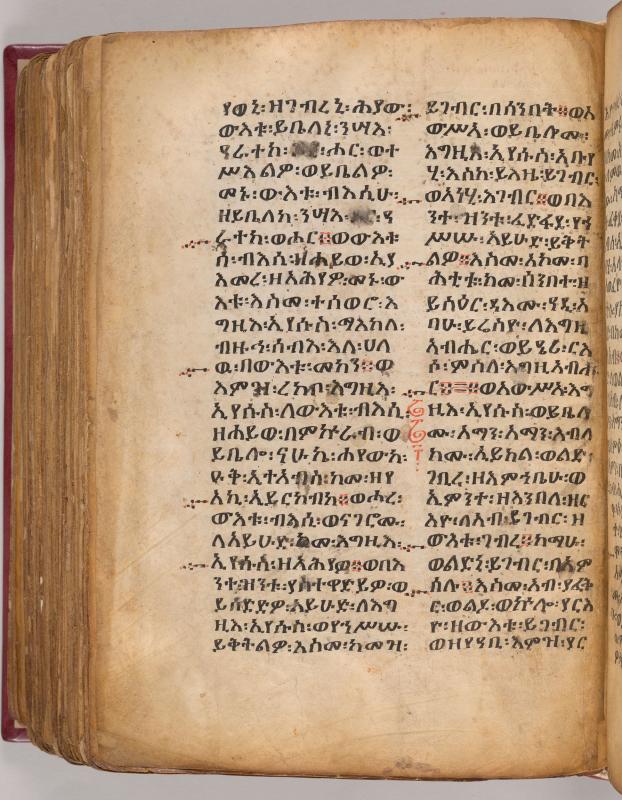 የወኒ፡ዘገብረኒ፡ሕያው፡
ውእቱ፡ይቤለኒ፡ንሣእ፡
ዓራተከ፡ ፡ሑር፡ወተ
ሥእልዎ፡ወይቤልዎ፡
መኑ፡ውእቱ፡ብእሲሁ፡
ዘይቤለከ፡ንሣእ፡ ፡ዓ
ራተከ፡ወሖር።ወውእቱ
ሰ፡ብእሲ፡ዘሐይወ፡ኢያ
እመረ፡ዘአሕየዎ፡መኑ፡ው
እቱ፡እስመ፡ተሰወሮ፡እ
ግዚእ፡ኢየሱስ፡ማእከለ፡
ብዙኅ፡ሰብእ፡እለ፡ሀለ
ዉ፡በውእቱ፡መካን።ወ
እምዝ፡ረከቦ፡እግዚእ፡
ኢየሱስ፡ለውእቱ፡ብእሲ፡
ዘሐይወ፡በምኵራብ፡ወ
ይቤሎ፡ናሁኬ፡ሐየውከ፡
ዑቅ፡ኢተአብስ፡ከመ፡ዘየ
አኪ፡ኢይርከብከ።ወሖረ፡
ውእቱ፡ብእሲ፡ወናገሮሙ፡
ለአይሁድ፡ከመ፡እግዚእ፡
ኢየሱስ፡ዘአሕየዎ።ወበእ
ንተ፡ዝንቱ፡ያስተዋድይዎ፡ወ
ይሰድድዎ፡አይሁድ፡ለእግ
ዚእ፡ኢየሱስ፡ወየኀሥሡ፡
ይቅትልዎ፡እስመ፡ከመዝ፡
ይገብር፡በሰንበት።ወአ
ውሥአ፡ወይቤሎሙ፡
እግዚእ፡ኢየሱስ፡አቡየ
ሂ፡እስከ፡ይእዜ፡ይገብር፡
ወአነሂ፡እገብር።ወበእ
ንተ፡ዝንቱ፡ፈድፋደ፡የኀ
ሥሡ፡አይሁድ፡ይቅት
ልዎ።እስመ፡አኮመ፡ባ
ሕቲቱ፡ከመ፡ሰንበተ፡ዘ
ይሰዕር፡ዳእሙ፡ዓዲ፡አ
ባሁ፡ይሬስዮ፡ለእግዚ
አብሔር፡ወይዔሪ፡ርእ
ሶ፡ምስለ፡እግዚአብሔ
ር።ወአውሥአ፡እግ
ዚእ፡ኢየሱስ፡ወይቤሎ
ሙ፡አማን፡አማን፡እብለ
ክሙ፡አይክል፡ወልድ፡
ገቢረ፡ዘእምኀቤሁ፡ወ
ኢምንተ፡ዘእንበለ፡ዘር
እዮ፡ለአብ፡ይገብር፡ዘ
ውእቱ፡ገብረ።ከማሁ፡
ወልድኒ፡ይገብር፡በአም
ሳሉ።እስመ፡አብ፡ያፈቅ
ር፡ወልዶ፡ወኵሎ፡ያርእ
ዮ፡ዘውእቱ፡ይገብር፡
ወዘየዓቢ፡እምዝ፡ያር